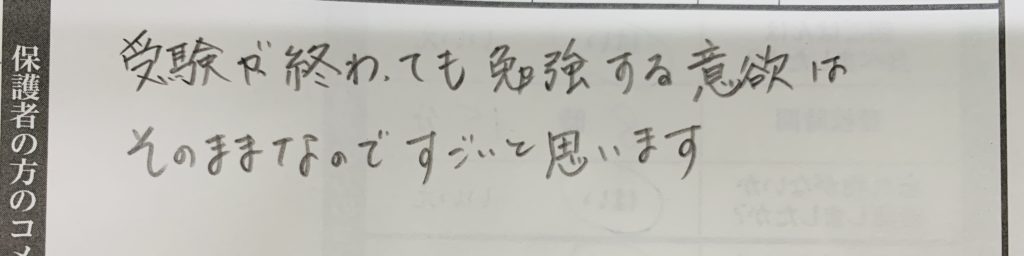 保護者の方のコメ
受験が終わっても勉強する意欲は
そのままなのですごいと思います